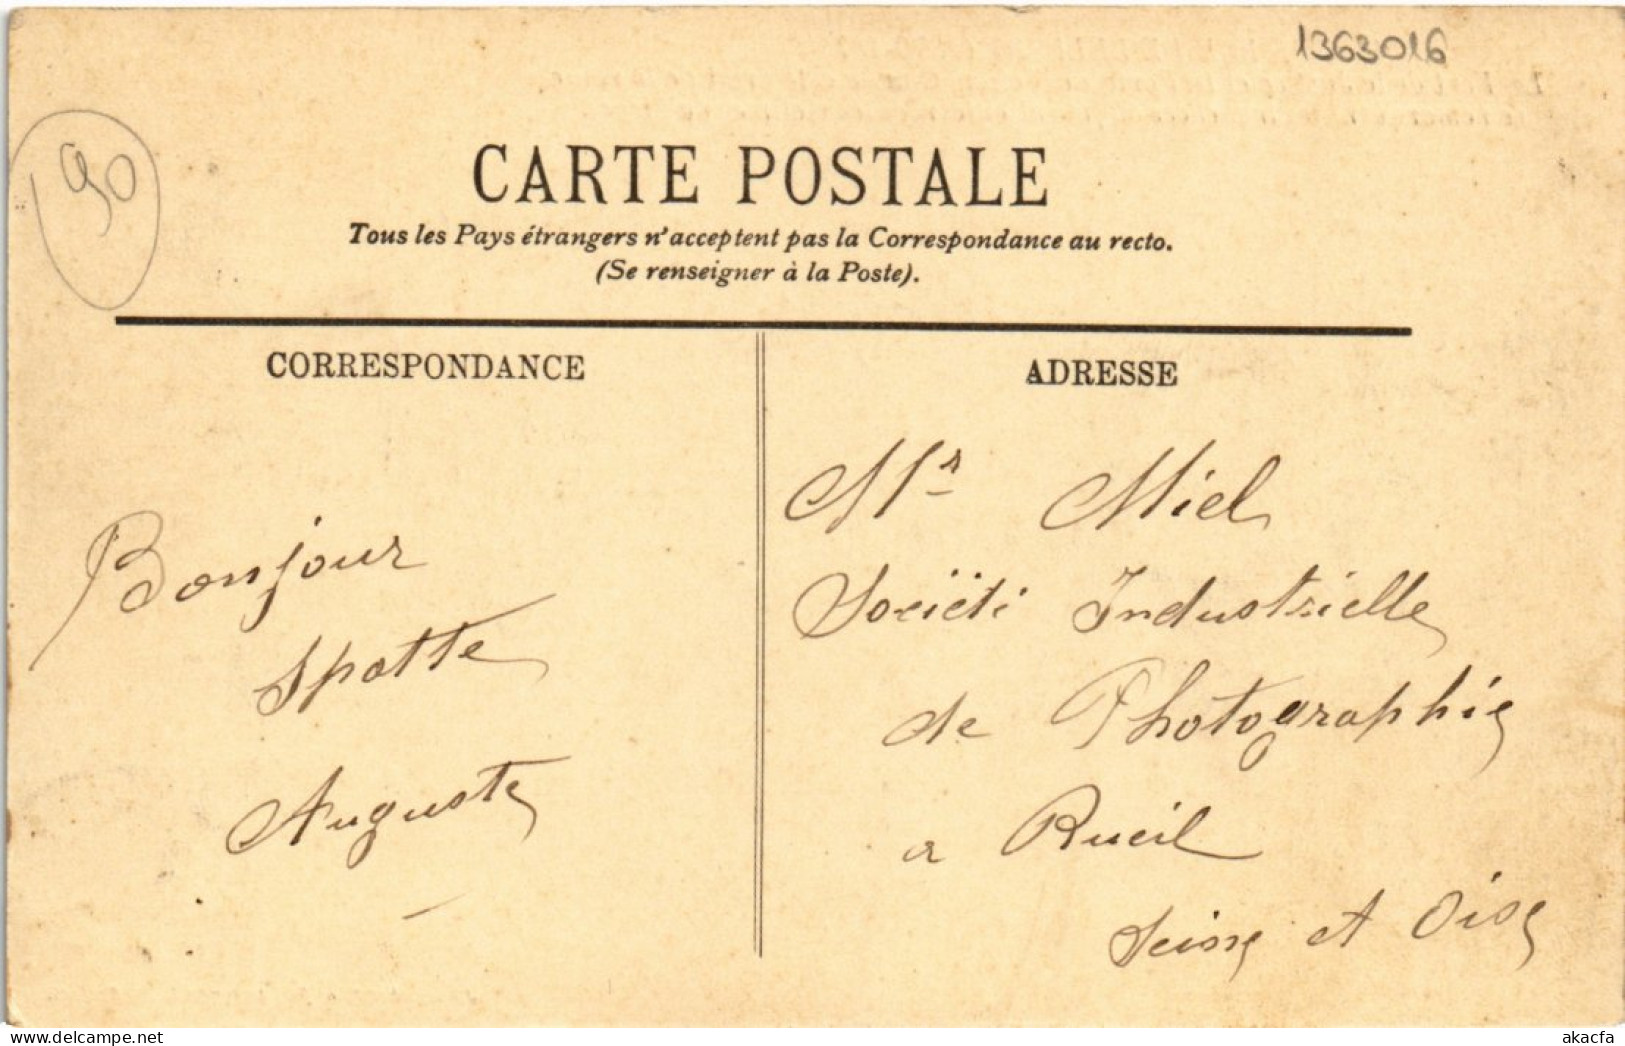 1363016
90
CARTE POSTALE
Tous les Pays étrangers n'acceptent pas la Correspondance au recto.
(Se renseigner à la Poste).
CORRESPONDANCE
Bonjour
Spotte
Auguste
ADRESSE
Mr Miel
Société Industrielle
de Photographie
a Rueil
Seine et Oise
www.delcampe.net
akacfa